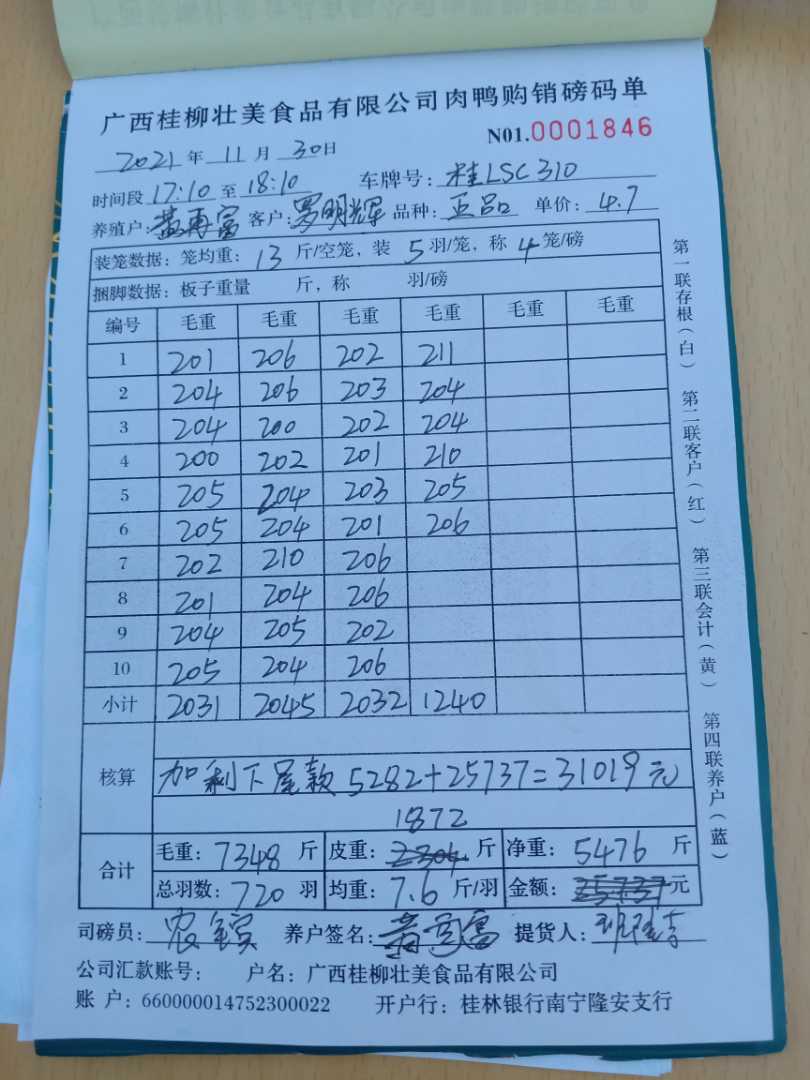 广西桂柳壮美食品有限公司肉鸭购销磅码单
N01.0001846
2021年11月30日
时间段17:10至18:10 车牌号:桂LSC310
养殖户:黄再富 客户:罗明辉 品种:正品 单价:4.7
装笼数据:笼均重:13斤/空笼,装5羽/笼,称4笼/磅
捆脚数据:板子重量 斤,称 羽/磅
编号 毛重 毛重 毛重 毛重 毛重 毛重
1 201 206 202 211
2 204 206 203 204
3 204 200 202 204
4 200 202 201 210
5 205 204 203 205
6 205 204 201 206
7 202 210 206
8 201 204 206
9 204 205 202
10 205 204 206
小计 2031 2045 2032 1240
核算 加剩下尾款5282+25737=31019元
1872
合计 毛重:7348斤 皮重:2304斤 净重:5476斤
总羽数:720羽 均重:7.6斤/羽 金额:25737元
司磅员: 养户签名: 提货人:
公司汇款账号: 户名:广西桂柳壮美食品有限公司
账 户:660000014752300022 开户行:桂林银行南宁隆安支行
第一联存根(白) 第二联客户(红) 第三联会计(黄) 第四联养户(蓝)